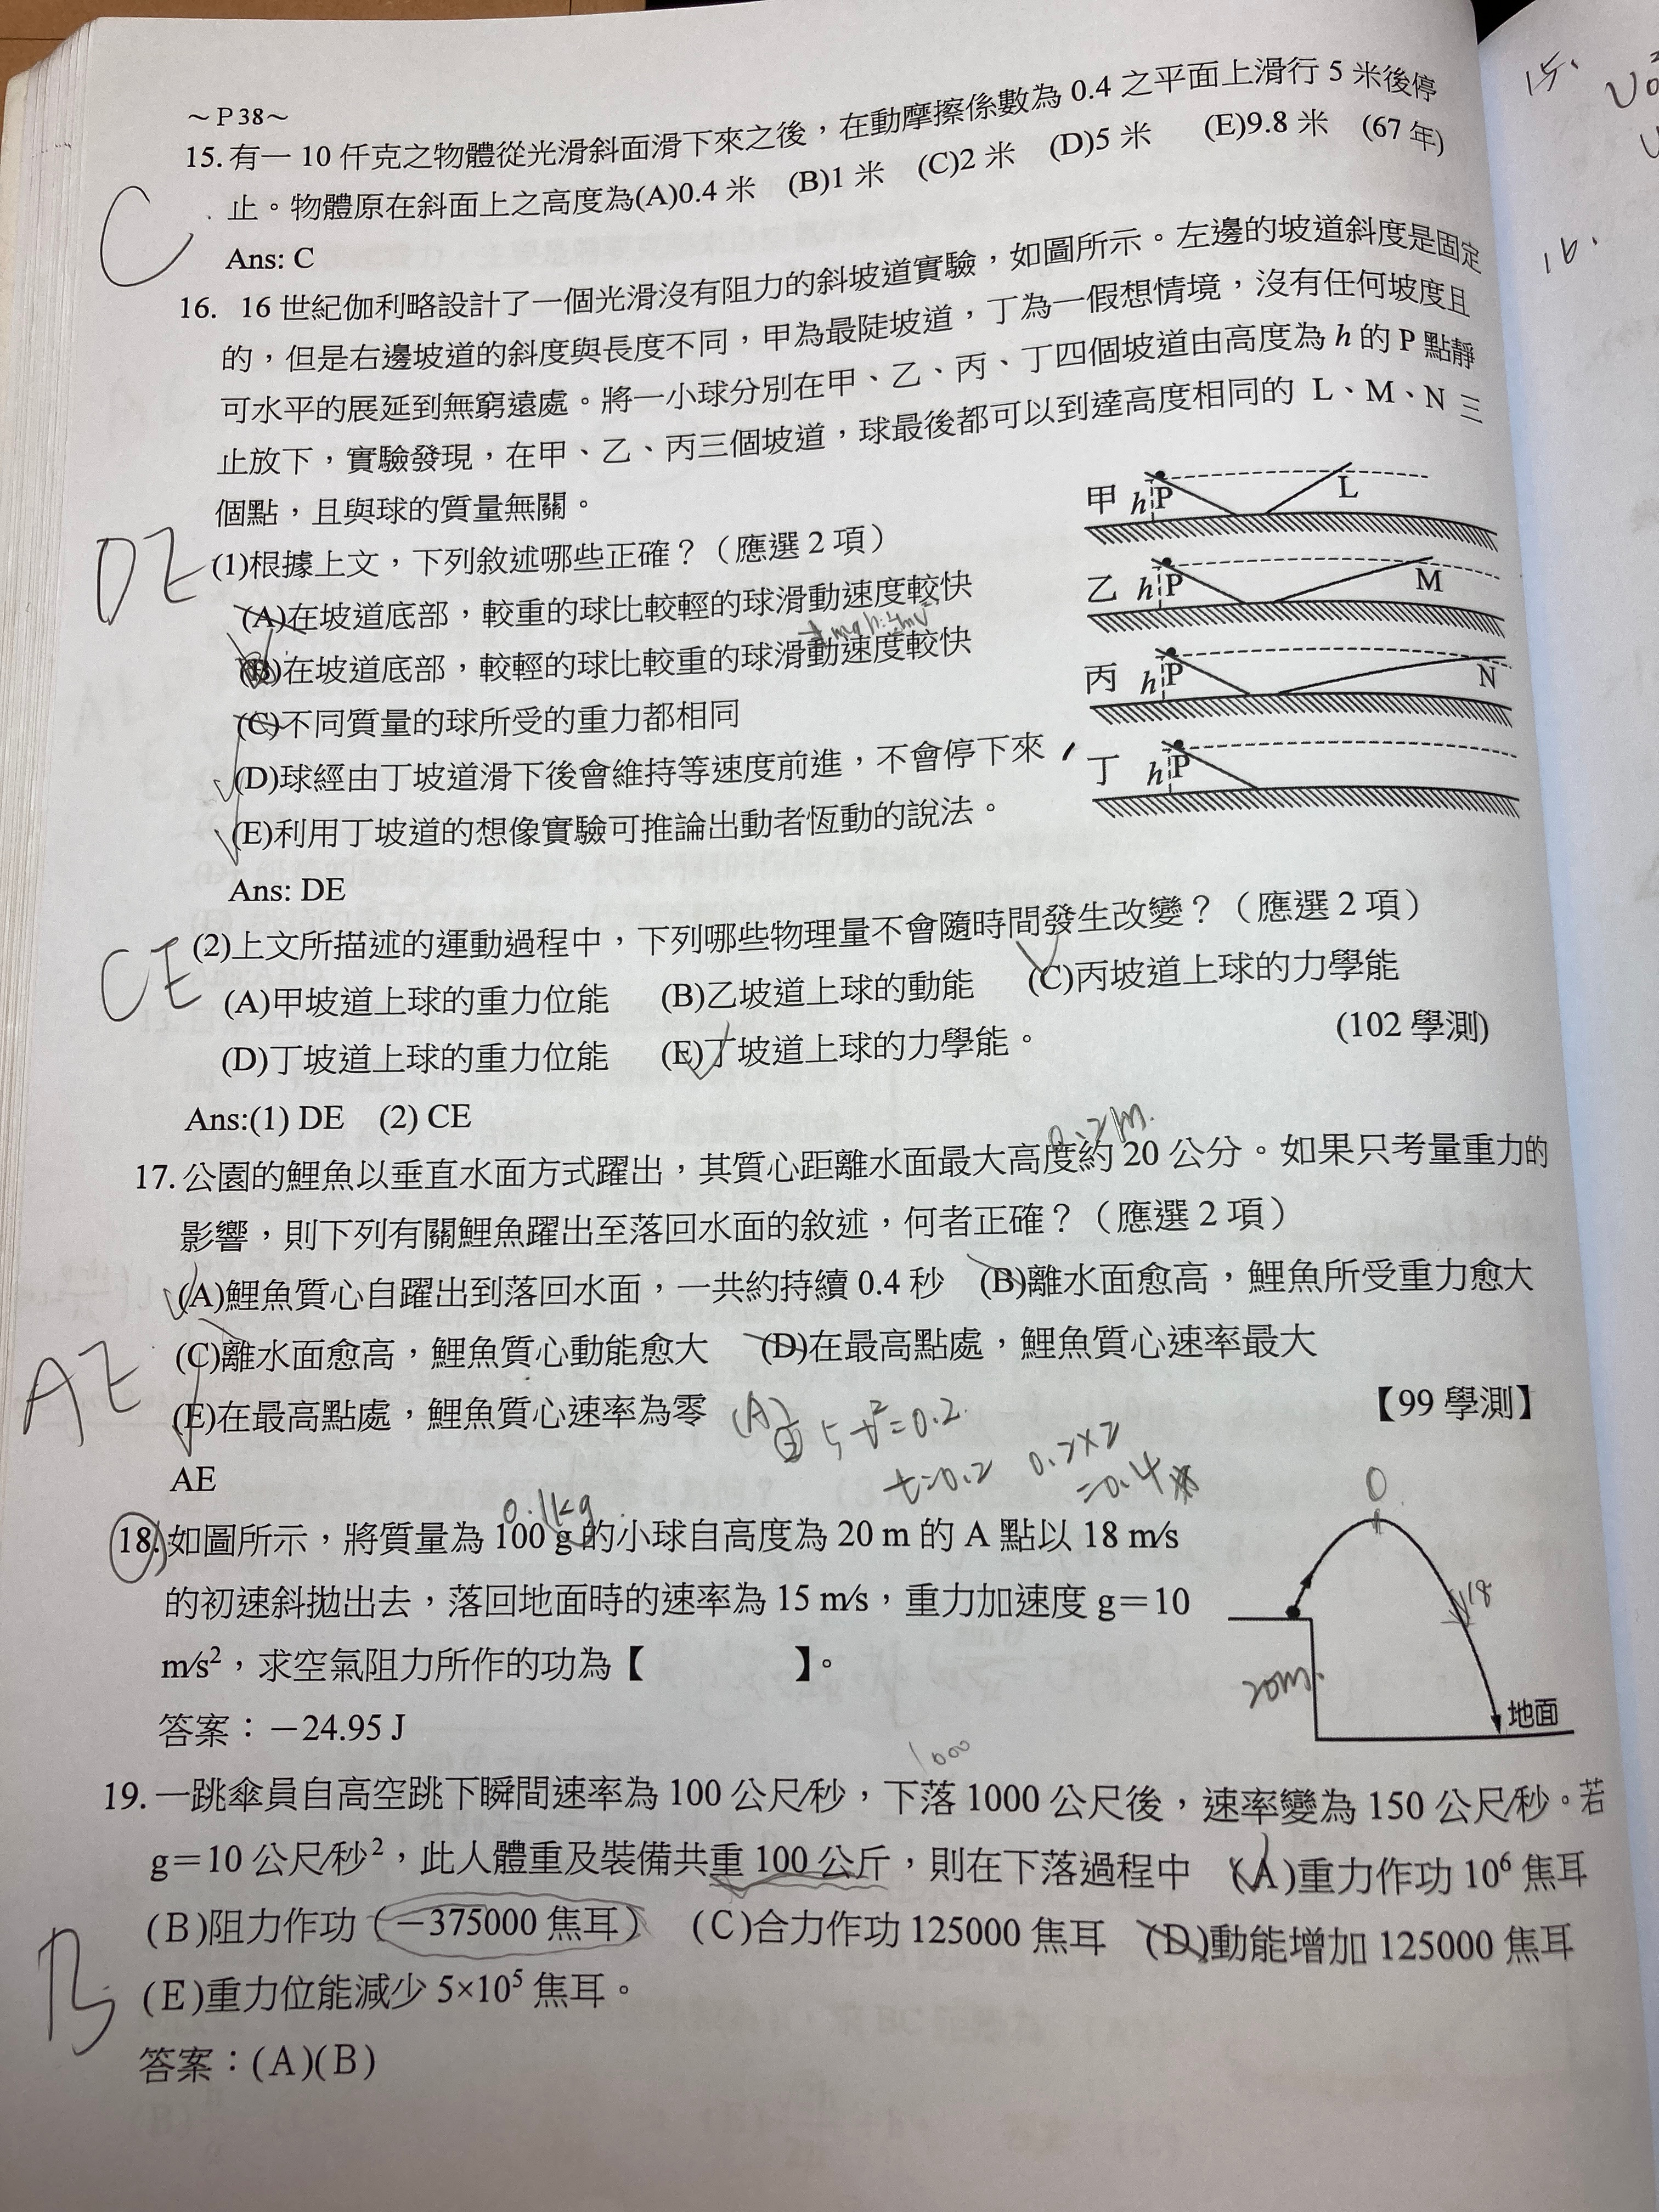 ～P 38～
15. 有一 10 仟克之物體從光滑斜面滑下來之後，在動摩擦係數為 0.4 之平面上滑行 5 米後停
止。物體原在斜面上之高度為(A)0.4 米 (B)1 米 (C)2 米 (D)5 米 (E)9.8 米 (67 年)
C
Ans: C
16. 16 世紀伽利略設計了一個光滑沒有阻力的斜坡道實驗，如圖所示。左邊的坡道斜度是固定
的，但是右邊坡道的斜度與長度不同，甲為最陡坡道，丁為一假想情境，沒有任何坡度且
可水平的展延到無窮遠處。將一小球分別在甲、乙、丙、丁四個坡道由高度為 h 的 P 點靜
止放下，實驗發現，在甲、乙、丙三個坡道，球最後都可以到達高度相同的 L、M、N 三
個點，且與球的質量無關。
DE
(1)根據上文，下列敘述哪些正確？（應選 2 項）
(A)在坡道底部，較重的球比較輕的球滑動速度較快
(B)在坡道底部，較輕的球比較重的球滑動速度較快
(C)不同質量的球所受的重力都相同
(D)球經由丁坡道滑下後會維持等速度前進，不會停下來
(E)利用丁坡道的想像實驗可推論出動者恆動的說法。
甲 h P L
乙 h P M
丙 h P N
丁 h P
Ans: DE
CE
(2)上文所描述的運動過程中，下列哪些物理量不會隨時間發生改變？（應選 2 項）
(A)甲坡道上球的重力位能 (B)乙坡道上球的動能 (C)丙坡道上球的力學能
(D)丁坡道上球的重力位能 (E)丁坡道上球的力學能。 (102 學測)
Ans:(1) DE (2) CE
0.2m.
17. 公園的鯉魚以垂直水面方式躍出，其質心距離水面最大高度約 20 公分。如果只考量重力的
影響，則下列有關鯉魚躍出至落回水面的敘述，何者正確？（應選 2 項）
(A)鯉魚質心自躍出到落回水面，一共約持續 0.4 秒 (B)離水面愈高，鯉魚所受重力愈大
(C)離水面愈高，鯉魚質心動能愈大 (D)在最高點處，鯉魚質心速率最大
AE
(E)在最高點處，鯉魚質心速率為零 【99 學測】
(A) 5t²=0.2
t=0.2 0.2×2
=0.4
AE
0.1kg
18. 如圖所示，將質量為 100 g 的小球自高度為 20 m 的 A 點以 18 m/s
的初速斜拋出去，落回地面時的速率為 15 m/s，重力加速度 g＝10
m/s²，求空氣阻力所作的功為【 】。
答案：－24.95 J
0
18
20m.
地面
1000
19. 一跳傘員自高空跳下瞬間速率為 100 公尺/秒，下落 1000 公尺後，速率變為 150 公尺/秒。若
g＝10 公尺/秒²，此人體重及裝備共重 100 公斤，則在下落過程中 (A)重力作功 10⁶ 焦耳
(B)阻力作功（－375000 焦耳） (C)合力作功 125000 焦耳 (D)動能增加 125000 焦耳
B
(E)重力位能減少 5×10⁵ 焦耳。
答案：(A)(B)
15.
16.